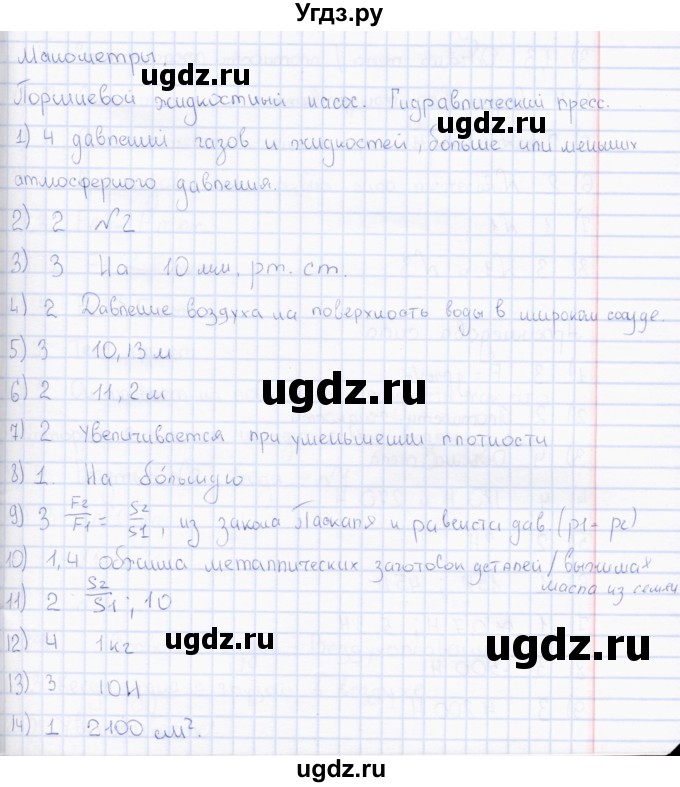 Угдз.ру
Манометры.
Поршневой жидкостный насос. Гидравлический пресс.
1) 4 давлений газов и жидкостей, больше или меньших
атмосферного давления.
2) 2 №2
3) 3 На 10 мм. рт. ст.
4) 2 Давление воздуха на поверхность воды в широком сосуде.
5) 3 10,13 м
6) 2 11,2 м
7) 2 Увеличивается при уменьшении плотности
8) 1 На бо́льшую
9) 3 F2/F1 = S2/S1, из закона Паскаля и равенства дав. (p1 = p2)
10) 1,4 обжима металлических заготовок деталей / выжимах
масла из семян
11) 2 S2/S1; 10
12) 4 1 кг
13) 3 10Н
14) 1 2100 см².
ugdz.ru
ugdz.ru
ugdz.ru
ugdz.ru
ugdz.ru
ugdz.ru
ugdz.ru